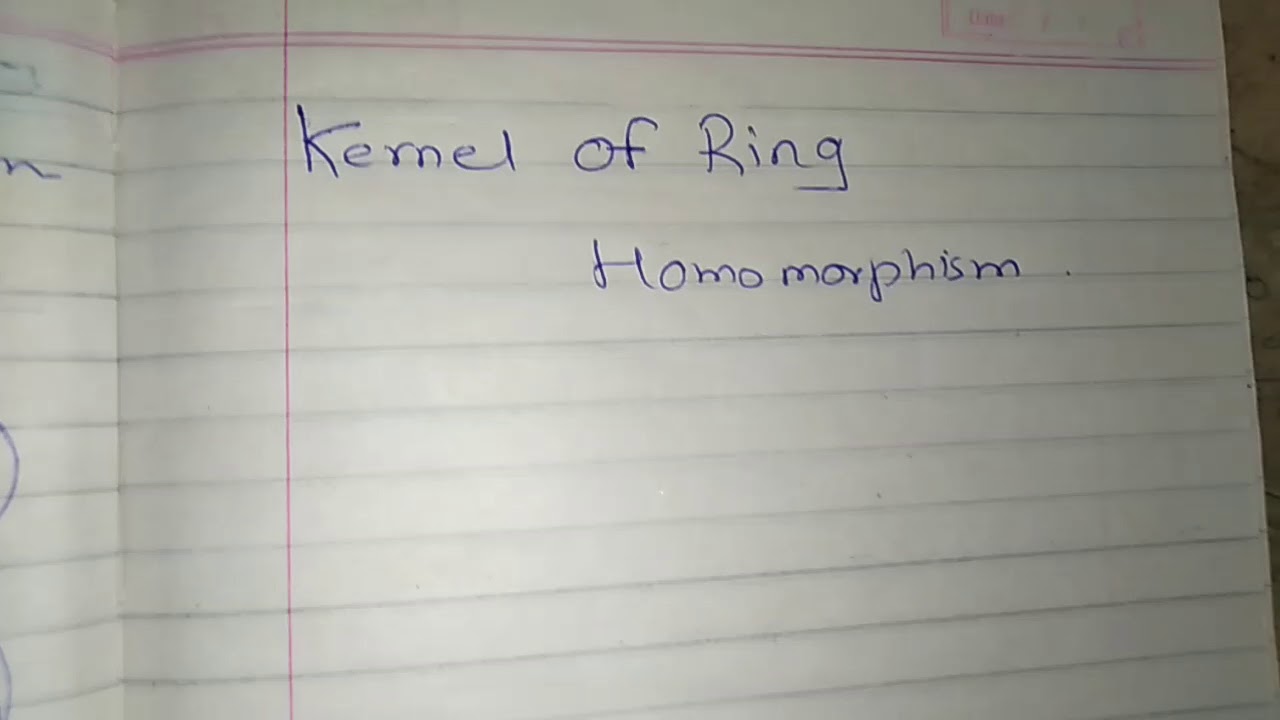 Kernel of Ring
Homomorphism .